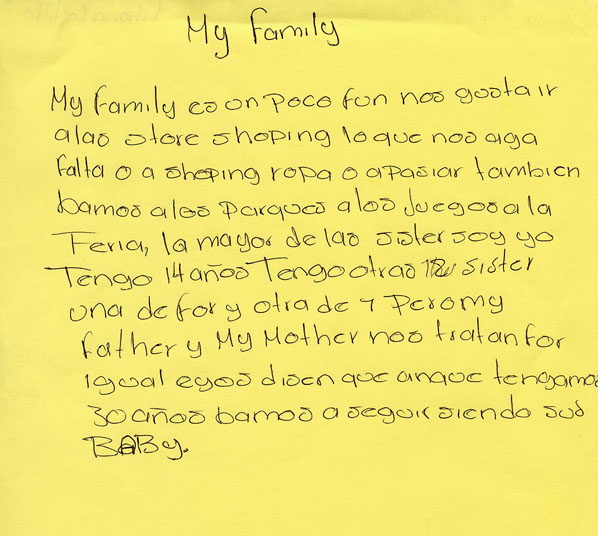 My Family
My Family es un Poco fun nos gusta ir
a las store shoping lo que nos aga
falta o a shoping ropa o a pasiar tambien
bamos a los Parques a los Juegos a la
Feria, la mayor de las sister soy yo
Tengo 14 años Tengo otras sister
una de for y otra de 7 Pero my
father y My Mother nos tratan for
igual eyos disen que anque tengamos
30 años bamos a seguir siendo sus
BABy.